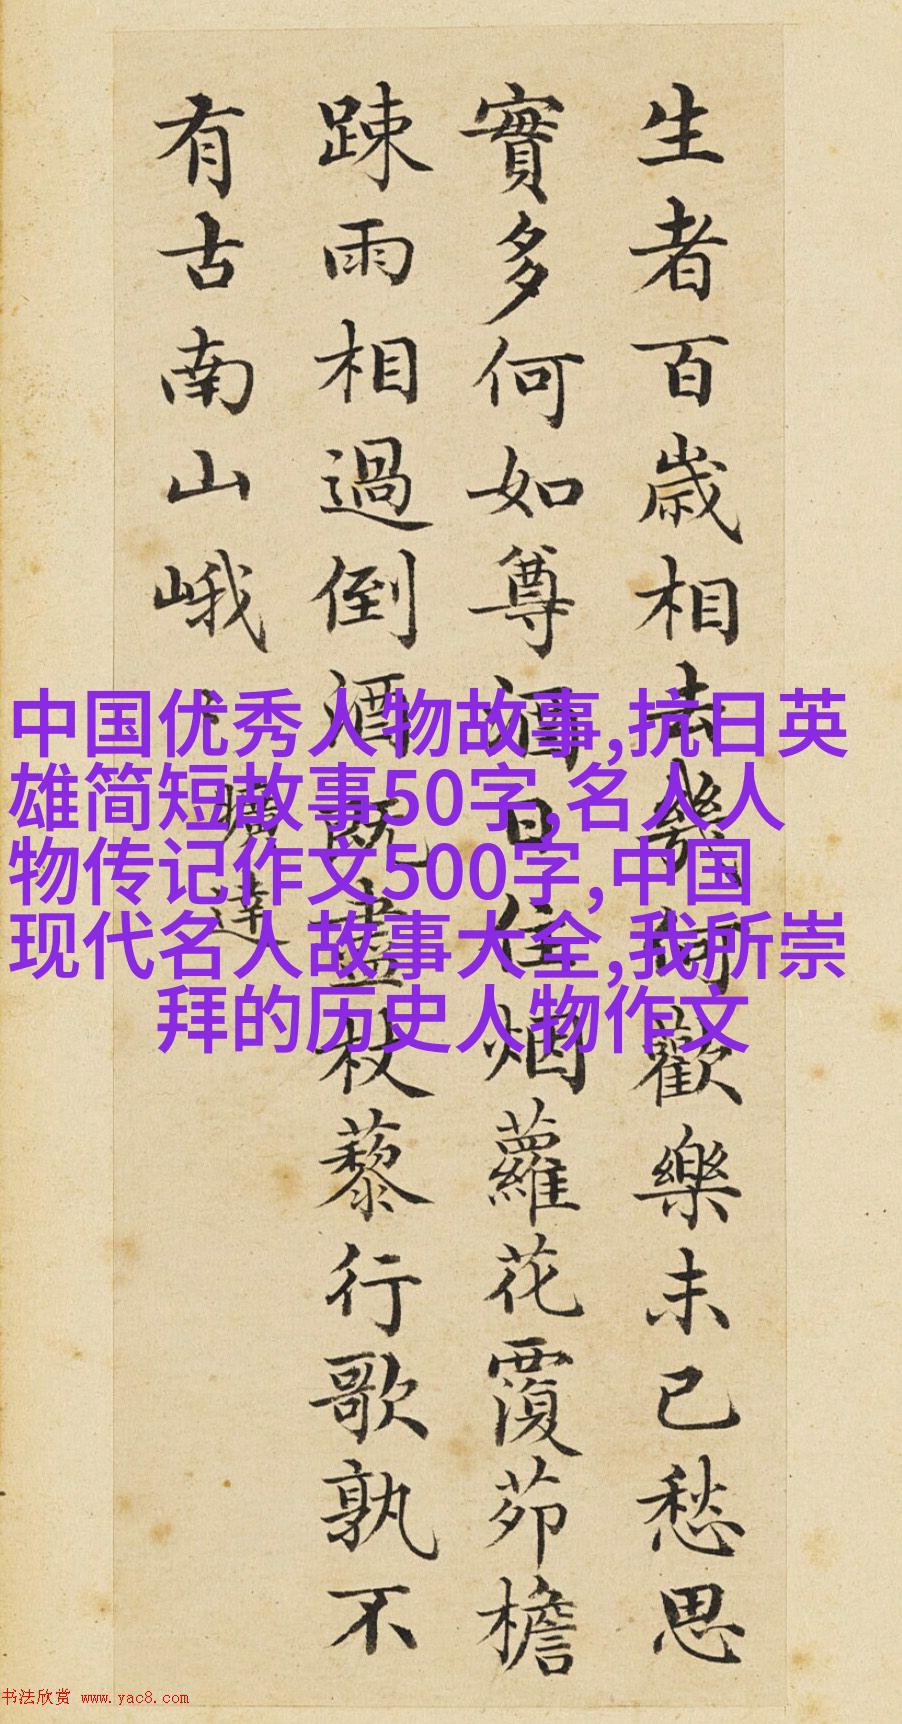 生者百歲相去幾何歡樂未已愁思
實多何如尊酒日往烟蘿花覆茆檐
踈雨相過倒酒既盡杖藜行歌孰不
有古南山峨
曠達
中国优秀人物故事,抗日英
雄简短故事50字,名人人
物传记作文500字,中国
现代名人故事大全,我所崇
拜的历史人物作文
书法欣赏 www.yac8.com